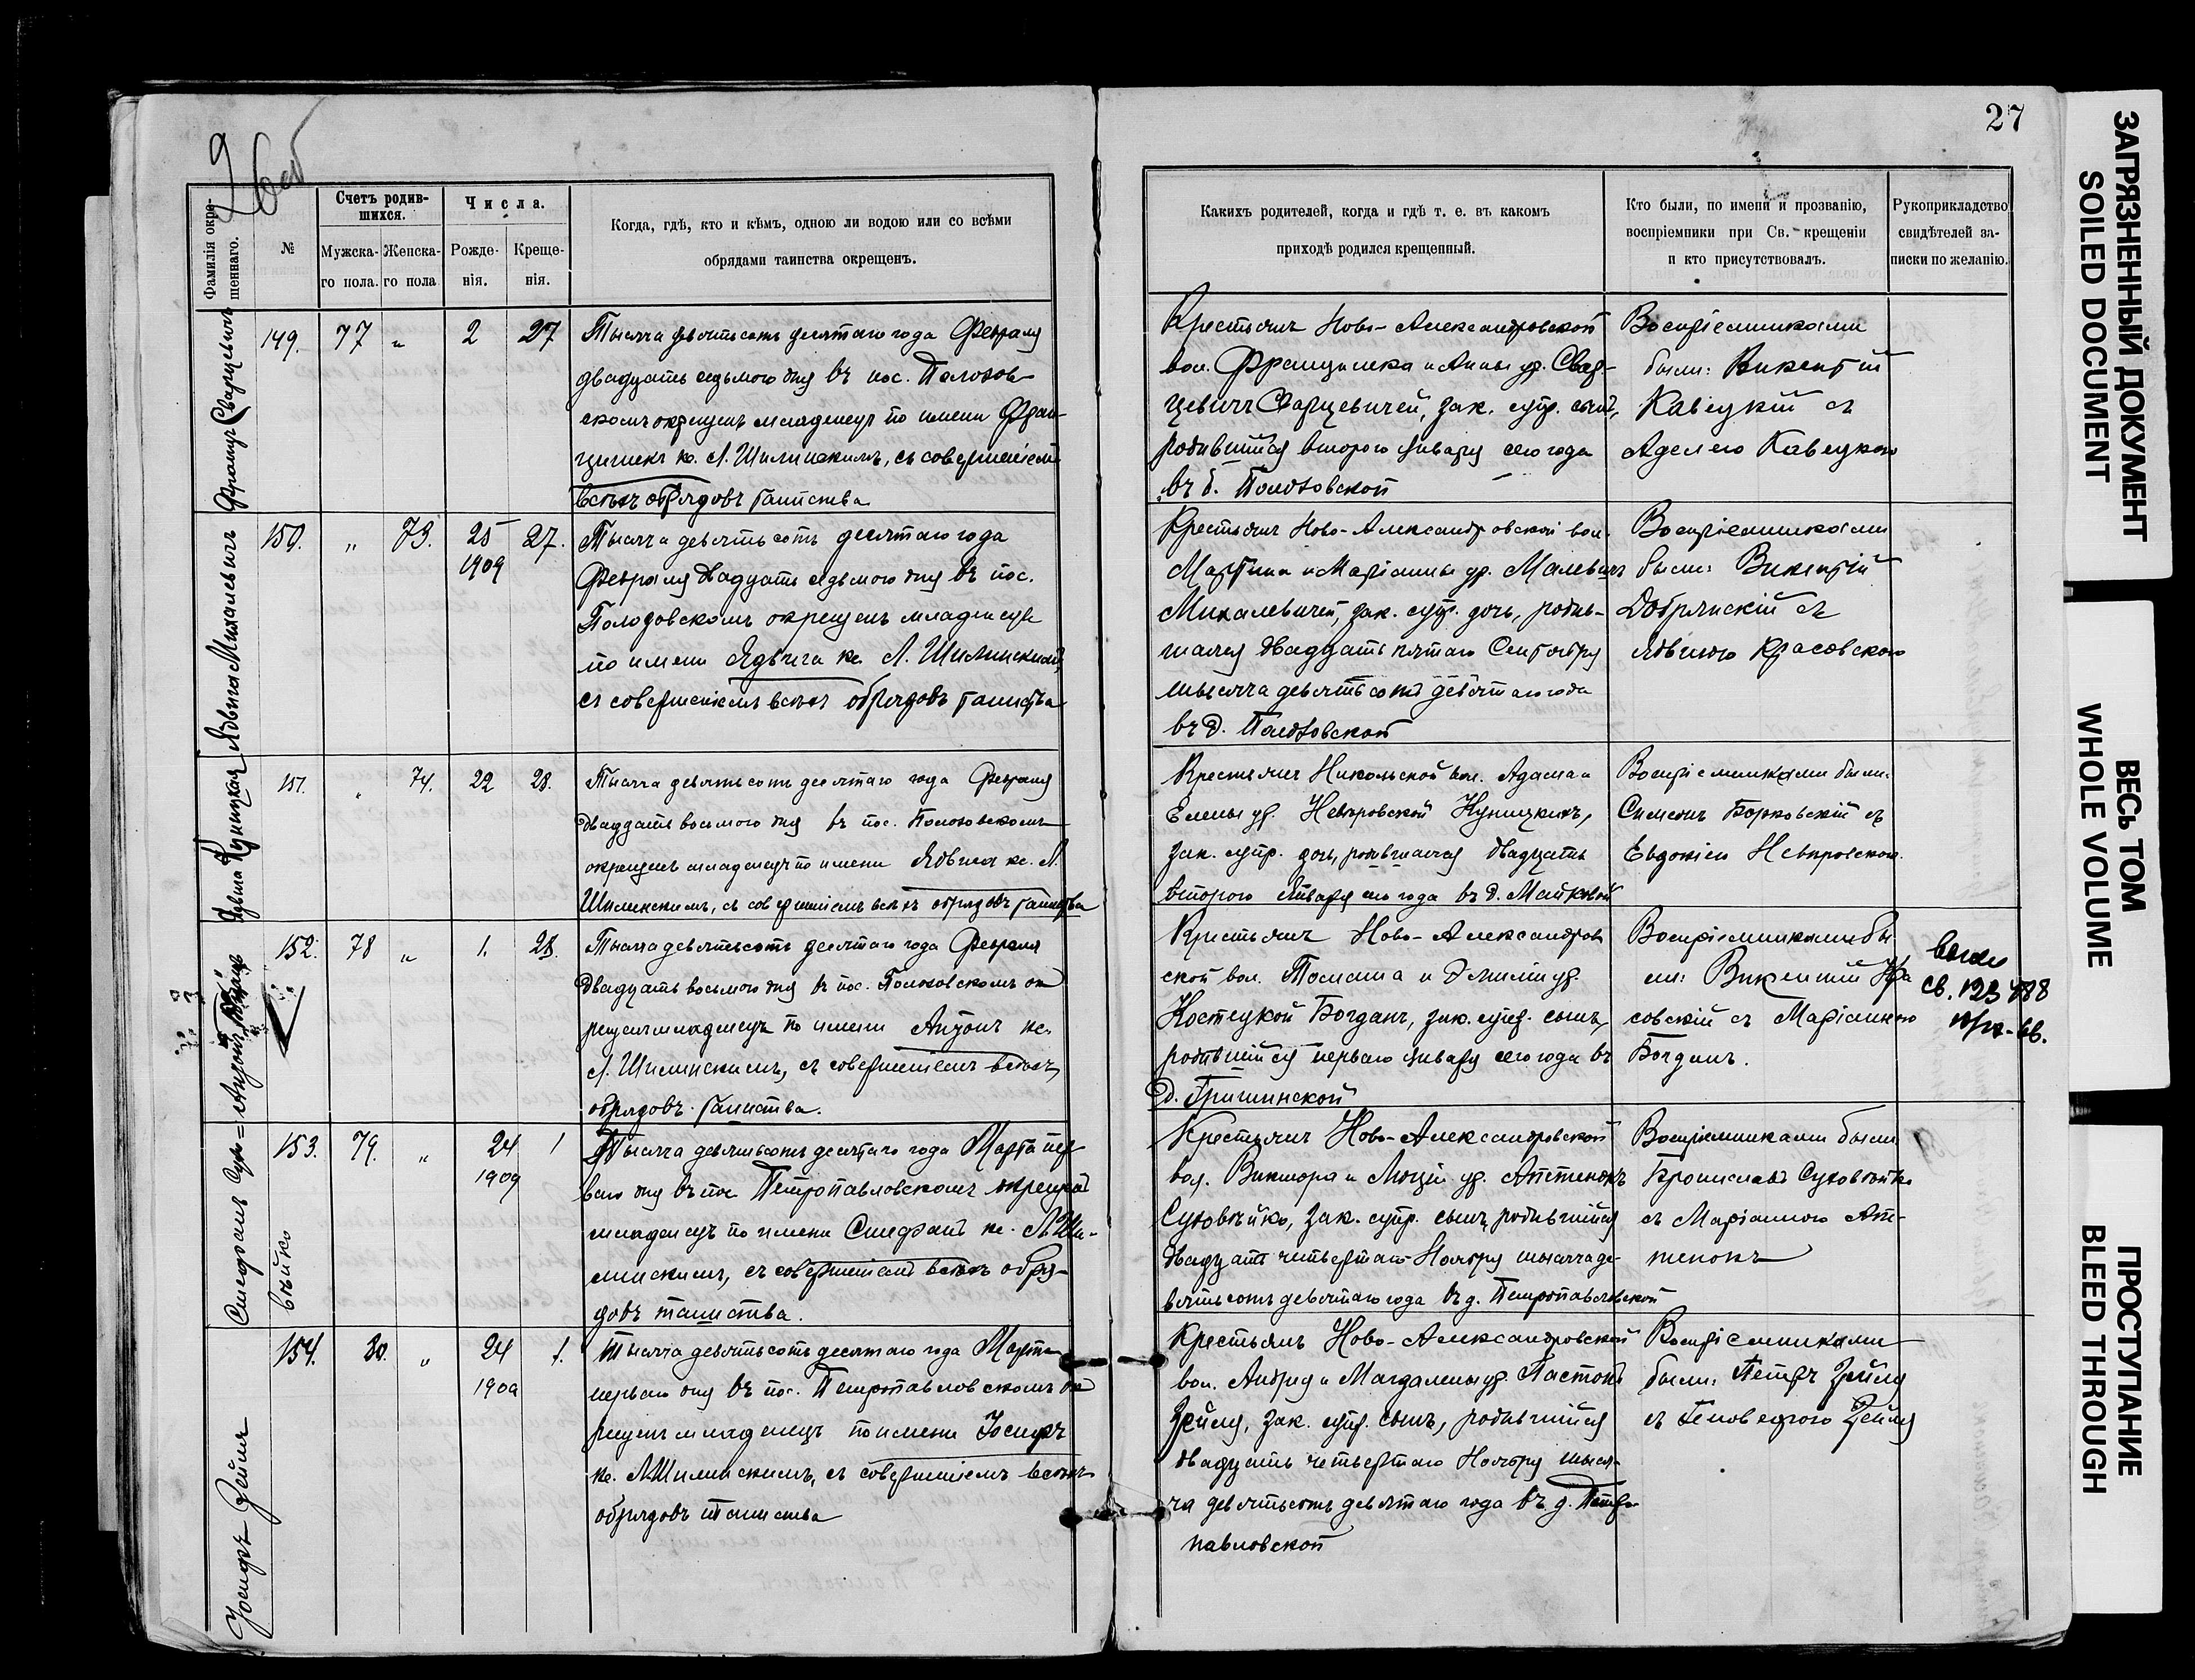 27
26 об
Фамилія окре-
щеннаго.
№
Счетъ родив-
шихся.
Мужска-
го пола.
Женска-
го пола
Числа.
Рожде-
нія.
Креще-
нія.
Когда, гдѣ, кто и кѣмъ, одною ли водою или со всѣми
обрядами таинства окрещенъ.
Какихъ родителей, когда и гдѣ т. е. въ какомъ
приходѣ родился крещенный.
Кто были, по имени и прозванію,
воспріемники при Св. крещеніи
и кто присутствовалъ.
Рукоприкладство
свидѣтелей за-
писки по желанію.
Францишекъ Сварцевичъ
149. 77 „ 2 27
Тысяча девятьсотъ десятаго года Февраля
двадцать седьмого дня въ пос. Полозов-
скомъ окрещенъ младенецъ по имени Фран-
цишекъ кс. Л. Шилинскимъ, съ совершеніемъ
всѣхъ обрядовъ таинства
Крестьянъ Ново-Александровской
вол. Францишка и Анны ур.
Сварцевичей, зак. супр. сынъ,
родившійся второго Января сего года
въ д. Полозовской
Воспріемниками
были: Викентій
Кавецкій съ
Аделею Кавецкою
Ядвига Михалевичъ
150. „ 73. 25 27.
1909
Тысяча девятьсотъ десятаго года
Февраля двадцать седьмого дня въ пос.
Полозовскомъ окрещенъ младенецъ
по имени Ядвига кс. Л. Шилинскимъ,
съ совершеніемъ всѣхъ обрядовъ таинства
Крестьянъ Ново-Александровской вол.
Мартина и Маріанны ур. Малевичъ
Михалевичей, зак. супр. дочь, родив-
шаяся двадцать пятаго Сентября
тысяча девятьсотъ девятаго года
въ д. Полозовской
Воспріемниками
были: Викентій
Добрянскій съ
Ядвигою Красовскою
Ядвига Куницкая
151. „ 74. 22 28.
Тысяча девятьсотъ десятаго года Февраля
двадцать восьмого дня въ пос. Полозовскомъ
окрещенъ младенецъ по имени Ядвига кс. Л.
Шилинскимъ, съ совершеніемъ всѣхъ обрядовъ таинства
Крестьянъ Никольской вол. Адама и
Елены ур. Невяровской Куницкихъ,
зак. супр. дочь, родившаяся двадцать
второго Января сего года въ д. Майковой
Воспріемниками были:
Симеонъ Борковскій съ
Евдокіею Невяровскою.
Антонъ Богданъ
152. 78 „ 1. 28.
Тысяча девятьсотъ десятаго года Февраля
двадцать восьмого дня въ пос. Полозовскомъ ок
рещенъ младенецъ по имени Антонъ кс.
Л. Шилинскимъ, съ совершеніемъ всѣхъ
обрядовъ таинства.
Крестьянъ Ново-Александров
ской вол. Томаша и Эмиліи ур.
Костецкой Богданъ, зак. супр. сынъ,
родившійся перваго Января сего года въ
д. Гришинской
Воспріемниками бы
ли: Викентій
совскій съ Маріанною
Богданъ.
св. 123
Стефанъ Сухо=
вѣйко
153. 79. „ 24 1
1909
Тысяча девятьсотъ десятаго года Марта пер
ваго дня въ пос. Петропавловскомъ окрещенъ
младенецъ по имени Стефанъ кс. Л. Ши-
линскимъ, съ совершеніемъ всѣхъ обря-
довъ таинства.
Крестьянъ Ново-Александровской
вол. Виктора и Люціи ур.
Суховѣйко, зак. супр. сынъ, родившійся
двадцать четвертаго Ноября тысяча де-
вятьсотъ девятаго года въ д. Петропавловской
Воспріемниками были
Брониславъ Суховѣйко
съ Маріанною Ап-
тенокъ
Іосифъ Зейля
154. 80. „ 24 1.
1909
Тысяча девятьсотъ десятаго года Марта
перваго дня въ пос. Петропавловскомъ ок
рещенъ младенецъ по имени Іосифъ
кс. Л. Шилинскимъ, съ совершеніемъ всѣхъ
обрядовъ таинства
Крестьянъ Ново-Александровской
вол. Андрея и Магдалены ур. Пастонъ
Зейля, зак. супр. сынъ, родившійся
двадцать четвертаго Ноября тыся-
ча девятьсотъ девятаго года въ д. Петро-
павловской
Воспріемниками
были: Петръ Зейля
съ Геновефою Зейля
ЗАГРЯЗНЕННЫЙ ДОКУМЕНТ
SOILED DOCUMENT
ВЕСЬ ТОМ
WHOLE VOLUME
ПРОСТУПАНИЕ
BLEED THROUGH